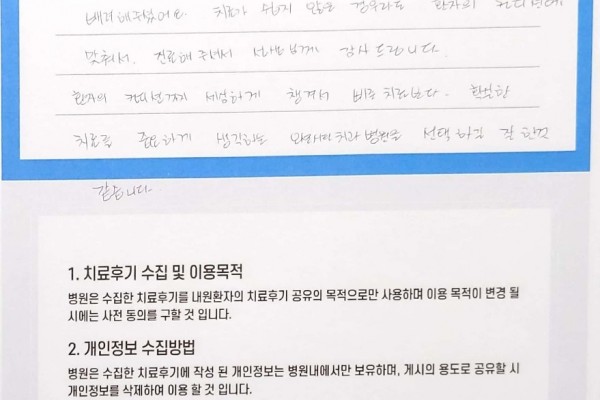 배려해주셨어요. 치료가 쉽지 않은 경우라도 환자의 컨디션에
맞춰서 진료해주셔서 감사드립니다.
환자의 컨디션까지 세심하게 챙겨서 비록 치료보다. 확실한
치료를 중요하게 생각하는 치과병원을 선택하길 잘 한것
같습니다.
1. 치료후기 수집 및 이용목적
병원은 수집한 치료후기를 내원환자의 치료후기 공유의 목적으로만 사용하며 이용 목적이 변경 될
시에는 사전 동의를 구할 것 입니다.
2. 개인정보 수집방법
병원은 수집한 치료후기에 작성 된 개인정보는 병원내에서만 보유하며, 게시의 용도로 공유할 시
개인정보를 삭제하여 이용 할 것 입니다.